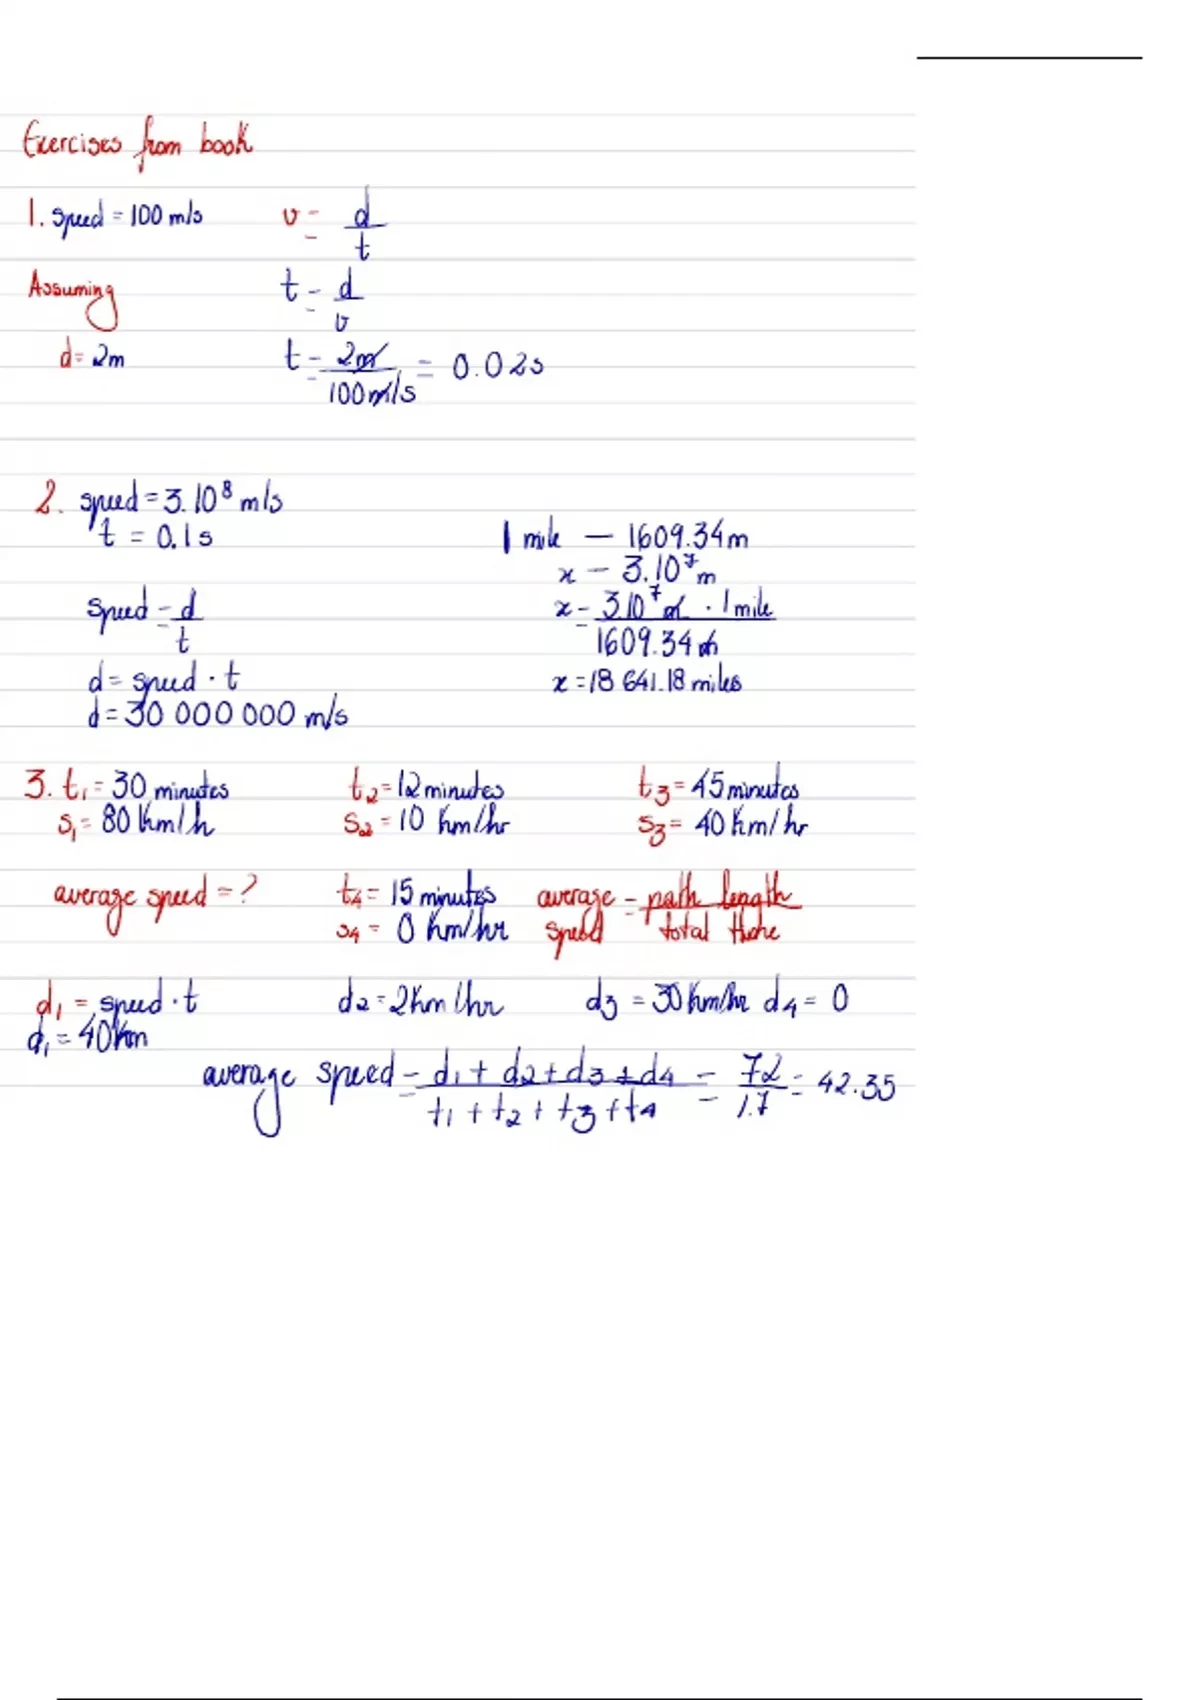 Exercises from book
1. speed = 100 m/s v = d/t
Assuming t = d/v
d = 2m t = 2m/100m/s = 0.02s
2. speed = 3.10⁸ m/s
t = 0.1s 1 mile — 1609.34m
x — 3.10⁷m
speed = d/t x = 3.10⁷m . 1 mile/1609.34m
d = speed . t x = 18 641.18 miles
d = 30 000 000 m/s
3. t₁ = 30 minutes t₂ = 12 minutes t₃ = 45 minutes
s₁ = 80 Km/h s₂ = 10 Km/hr s₃ = 40 Km/hr
average speed = ? t₄ = 15 minutes average speed = path length/total time
s₄ = 0 Km/hr
d₁ = speed . t d₂ = 2Km/hr d₃ = 30 Km/hr d₄ = 0
d₁ = 40Km
average speed = d₁ + d₂ + d₃ + d₄/t₁ + t₂ + t₃ + t₄ = 72/1.7 = 42.35